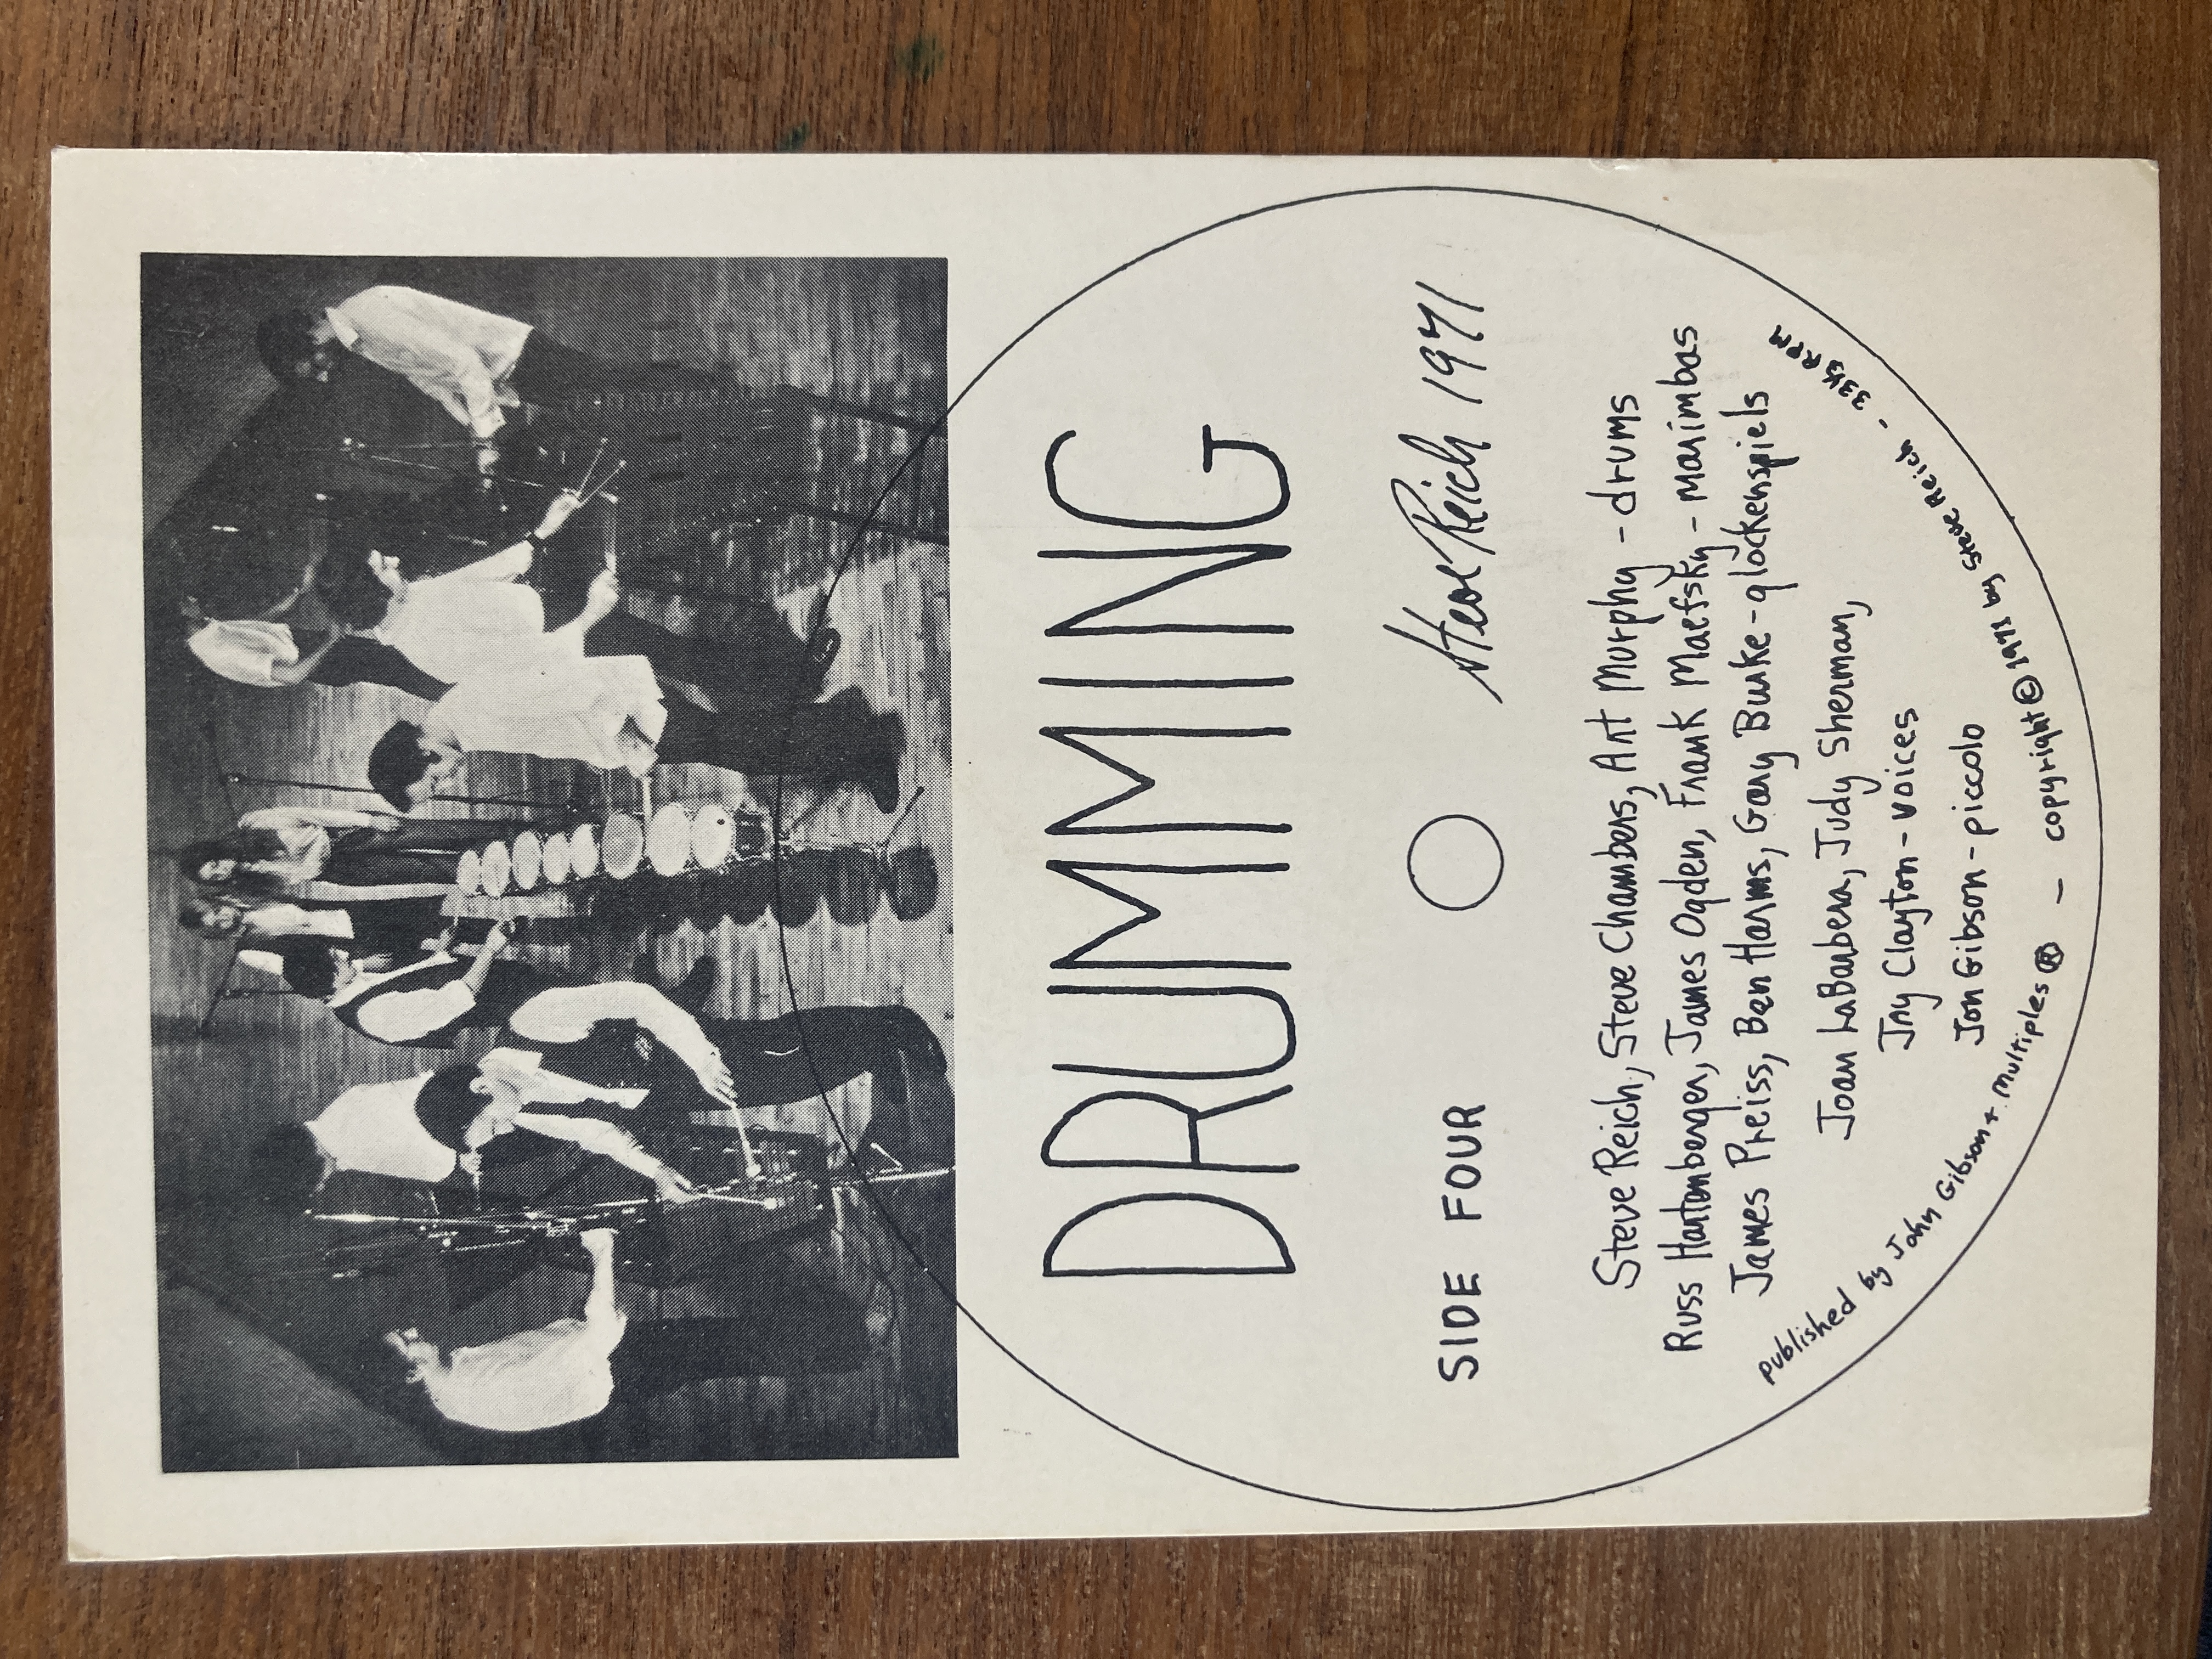 DRUMMING
SIDE FOUR Steve Reich 1971
Steve Reich, Steve Chambers, Art Murphy - drums
Russ Hartenberger, James Ogden, Frank Maefsky - marimbas
James Preiss, Ben Harms, Gary Burke - glockenspiels
Joan LaBarbera, Judy Sherman,
Jay Clayton - voices
Jon Gibson - piccolo
published by John Gibson + multiples ℗ - copyright © 1971 by Steve Reich - 33⅓ RPM